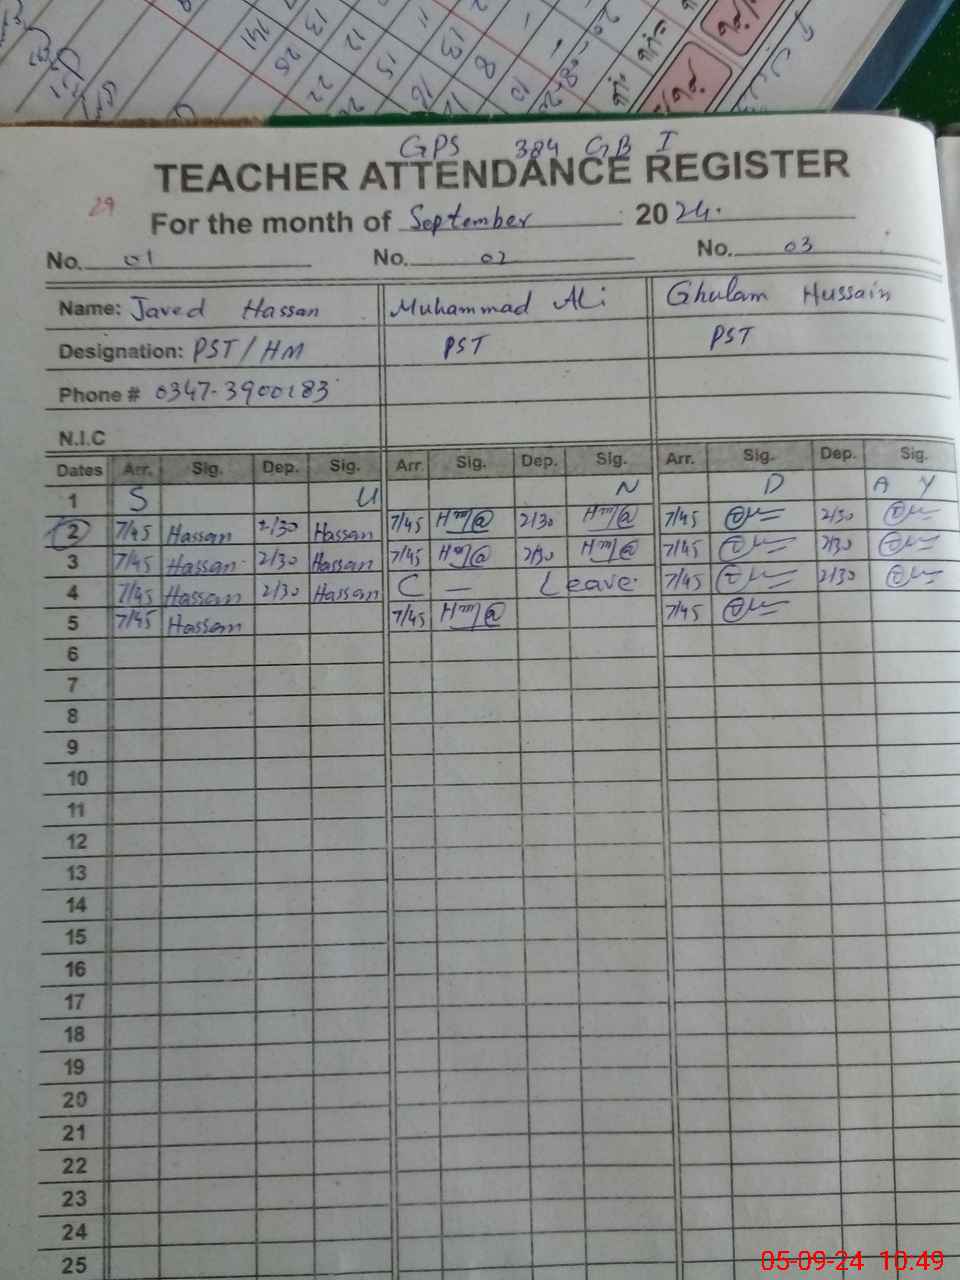 GPS 384 GB I
TEACHER ATTENDANCE REGISTER
29
For the month of September 2024.
No. 01 No. 02 No. 03
Name: Javed Hassan Muhammad Ali Ghulam Hussain
Designation: PST/HM PST PST
Phone # 0347-3900183
N.I.C
Dates Arr. Sig. Dep. Sig. Arr. Sig. Dep. Sig. Arr. Sig. Dep. Sig.
1 S U N D A Y
2 7/45 Hassan 2/30 Hassan 7/45 2/30 7/45 2/30
3 7/45 Hassan 2/30 Hassan 7/45 2/30 7/45 2/30
4 7/45 Hassan 2/30 Hassan C — Leave. 7/45 2/30
5 7/45 Hassan 7/45 7/45
6
7
8
9
10
11
12
13
14
15
16
17
18
19
20
21
22
23
24
25
05-09-24 10:49